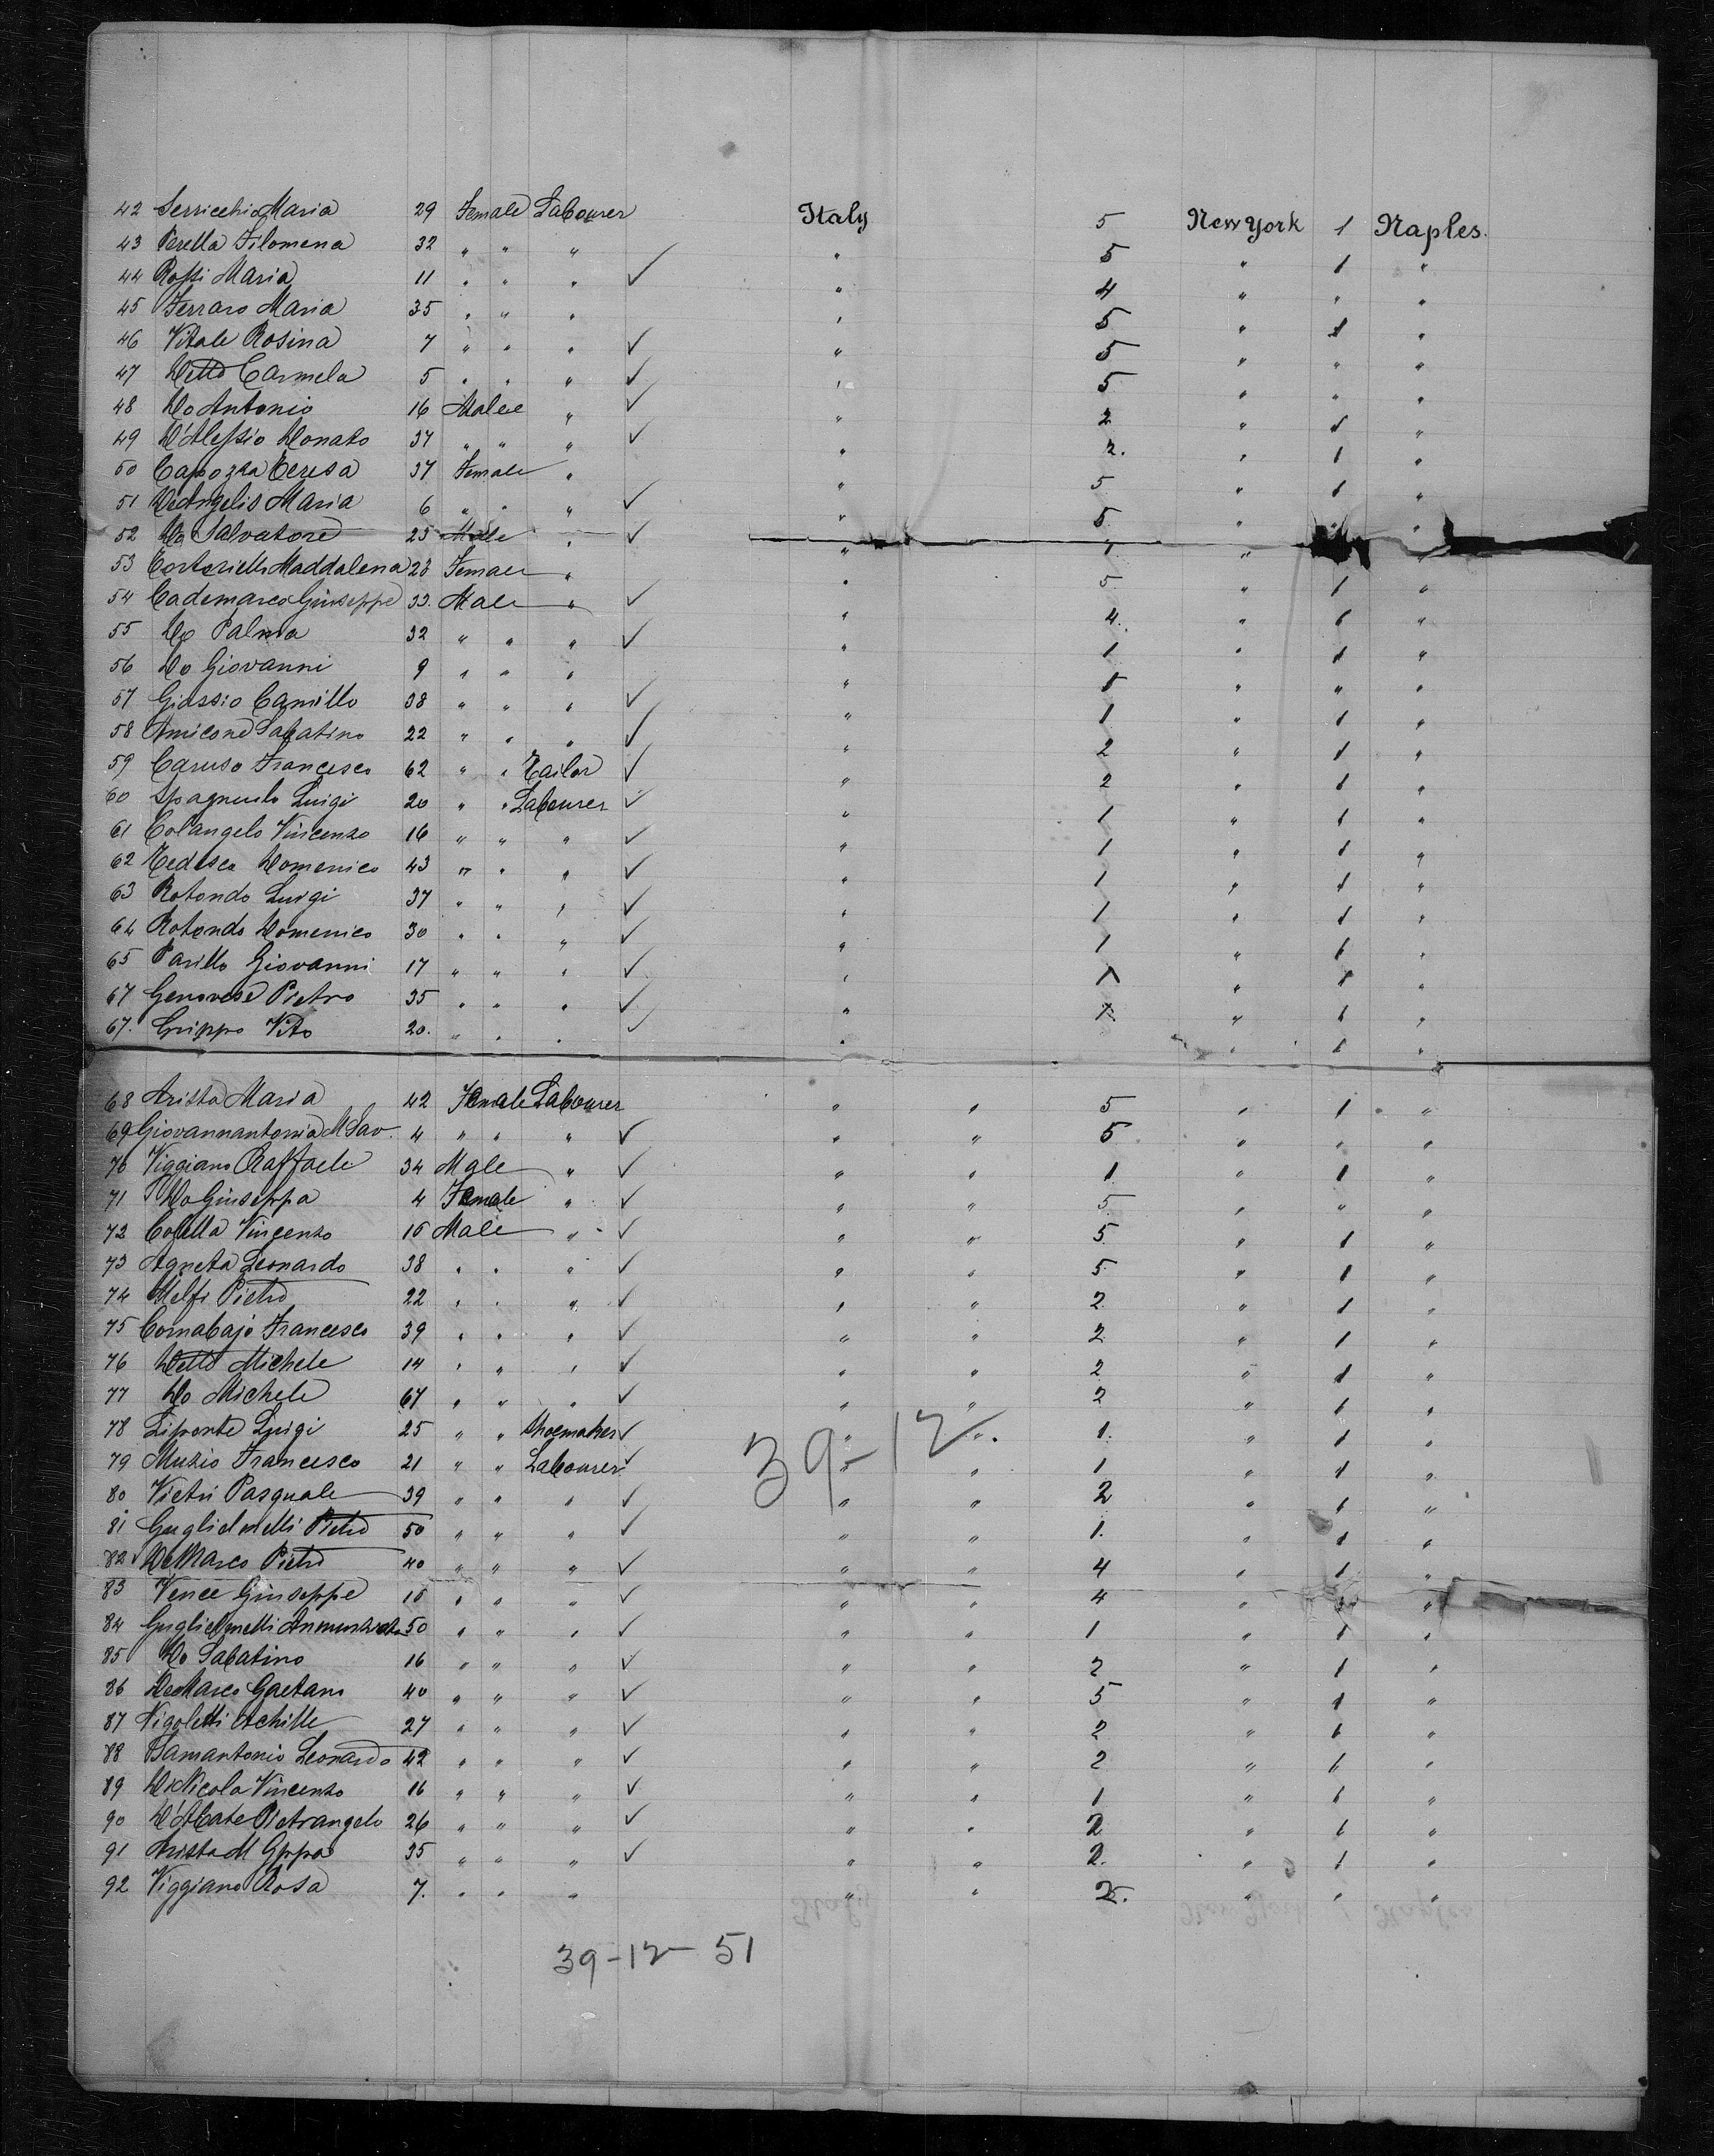 42 Serricchio Maria 29 Female Labourer Italy 5 New York 1 Naples.
43 Perella Filomena 32 " " " " 5 " 1 "
44 Rossi Maria 11 " " " ✓ " 4 " " "
45 Ferraro Maria 35 " " " " 5 " 1 "
46 Vitale Rosina 7 " " " ✓ " 5 " " "
47 Detto Carmela 5 " " " ✓ " 5 " " "
48 Do Antonio 16 Male " ✓ " 2 " 1 "
49 D'Alessio Donato 37 " " " ✓ " 2. " 1 "
50 Capozza Teresa 37 Female " " 5 " 1 "
51 DeAngelis Maria 6 " " " ✓ " 5 " "
52 Do Salvatore 25 Male " ✓ " 1 " "
53 Maddalena 23 Female " " 5 " 1 "
54 Cademarco Giuseppe 33. Male " ✓ " 4. " 1 "
55 Do Palma 32 " " " ✓ " 1 " 1 "
56 Do Giovanni 9 " " " " 1 " " "
57 Giassio Camillo 38 " " " ✓ " 1 " 1 "
58 Amicone Sabatino 22 " " " ✓ " 2 " 1 "
59 Caruso Francesco 62 " " Tailor ✓ " 2 " 1 "
60 Spagnuolo Luigi 20 " " Labourer ✓ " 1 " 1 "
61 Colangelo Vincenzo 16 " " " ✓ " 1 " 1 "
62 Tedesco Domenico 43 " " " ✓ " 1 " 1 "
63 Rotondo Luigi 37 " " " ✓ " 1 " 1 "
64 Rotondo Domenico 30 " " " ✓ " 1 " 1 "
65 Parillo Giovanni 17 " " " ✓ " 1 " 1 "
67 Genovese Pietro 35 " " " ✓ " 1 " 1 "
67. Grippo Vito 20. " " " ✓ " " 1 "
68 Arista Maria 42 Female Labourer " " 5 " 1 "
69 Giovannantonio M Sav. 4 " " " ✓ " " 5 " " "
70 Viggiano Raffaele 34 Male " ✓ " " 1 " 1 "
71 Do Giuseppa 4 Female " ✓ " " 5 " " "
72 Colella Vincenzo 16 Male " ✓ " " 5 " 1 "
73 Agneta Leonardo 38 " " " ✓ " " 5 " 1 "
74 Melfi Pietro 22 " " " ✓ " " 2 " 1 "
75 Cornabajo Francesco 39 " " " ✓ " " 2 " 1 "
76 Detto Michele 14 " " " ✓ " " 2 " 1 "
77 Do Michele 67 " " " ✓ " " 2 " 1 "
78 Liponte Luigi 25 " " Shoemaker ✓ " " 1. " 1 "
39-12.
79 Muzio Francesco 21 " " Labourer ✓ " " 1 " 1 "
80 Vietri Pasquale 39 " " " ✓ " " 2 " 1 "
81 Guglielmelli Pietro 50 " " " ✓ " " 1. " 1 "
82 DeMarco Pietro 40 " " " ✓ " " 4 " 1 "
83 Vence Giuseppe 16 " " " ✓ " " 4 " "
84 Guglielmelli Annunziato 50 " " " ✓ " " 1 " 1 "
85 Do Sabatino 16 " " " ✓ " " 2 " 1 "
86 DeMarco Gaetano 40 " " " ✓ " " 5 " 1 "
87 Nigoletti Achille 27 " " " ✓ " " 2 " 1 "
88 Samantonio Leonardo 42 " " " ✓ " " 2 " 1 "
89 DeNicola Vincenzo 16 " " " ✓ " " 1 " 1 "
90 D'Abate Pietrangelo 26 " " " ✓ " " 2 " 1 "
91 Arista M Gppa 35 " " " ✓ " " 2. " 1 "
92 Viggiano Rosa 7. " " " " " 2. " " "
39-12- 51